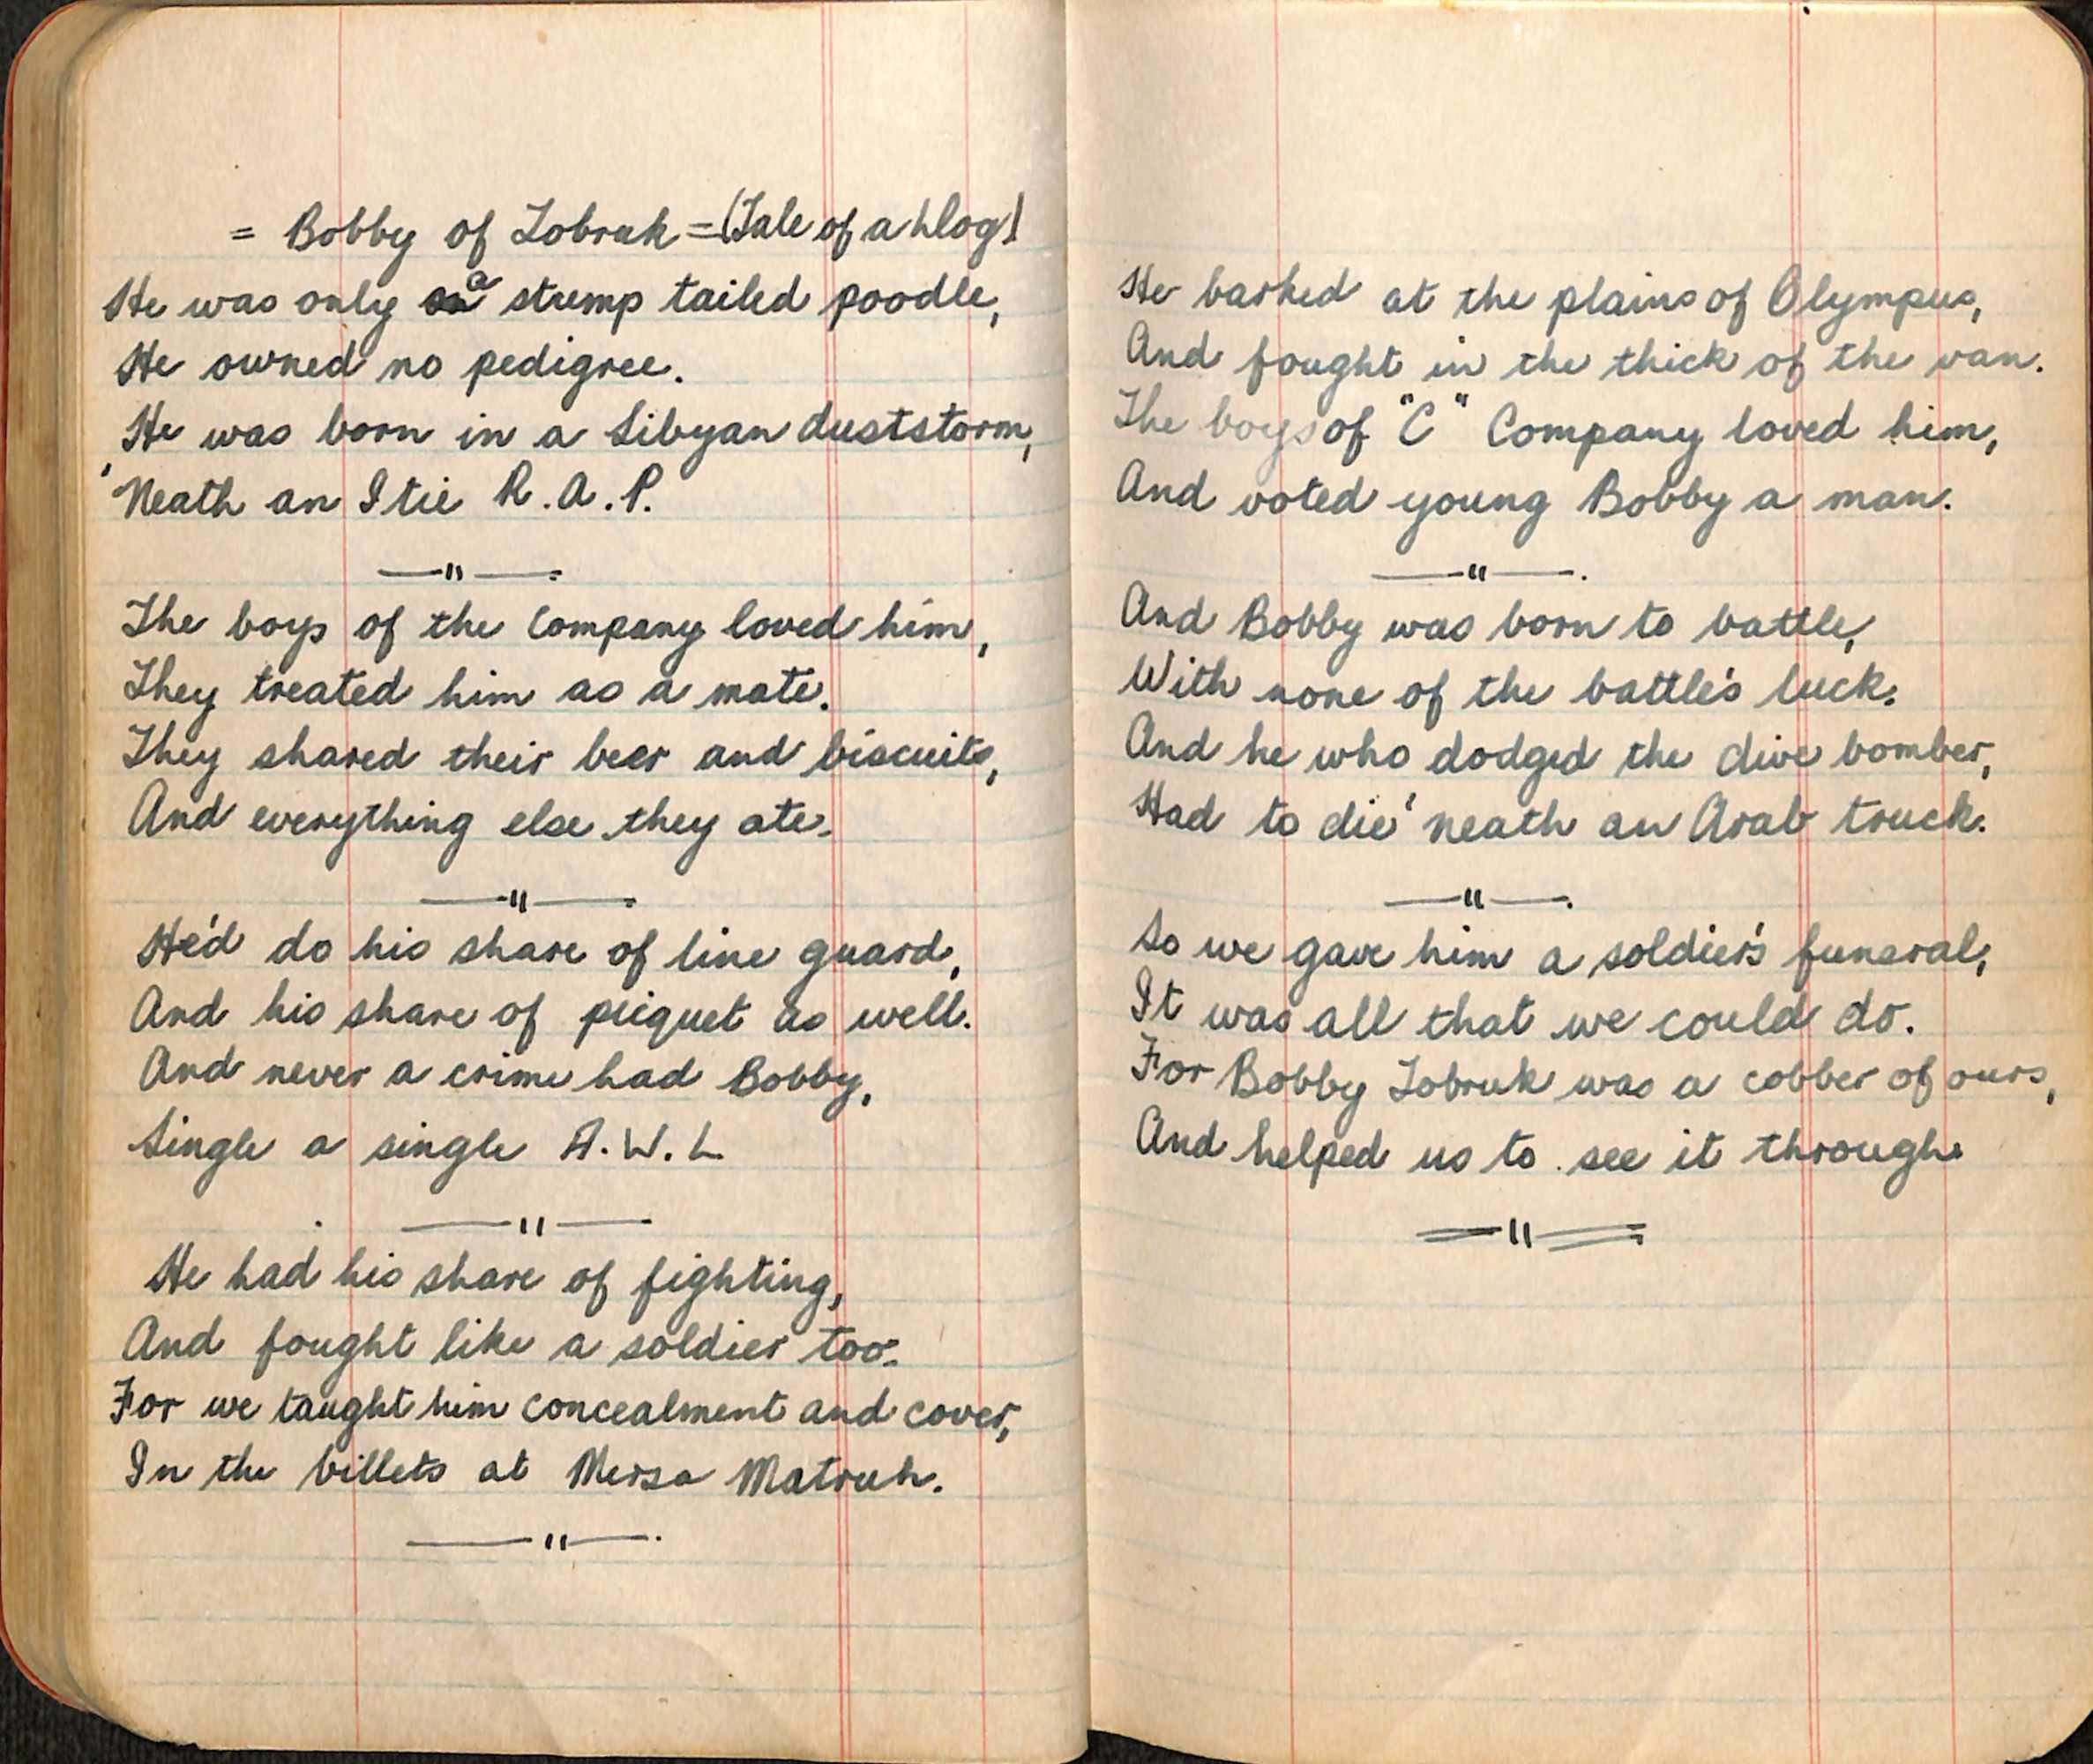 = Bobby of Tobruk = (Tale of a Dog)
He was only a stump tailed poodle,
He owned no pedigree.
He was born in a Libyan duststorm,
'Neath an Itie R.A.P.
The boys of the Company loved him,
They treated him as a mate.
They shared their beer and biscuits,
And everything else they ate.
He'd do his share of line guard,
And his share of picquet as well.
And never a crime had Bobby,
Single a single A.W.L
He had his share of fighting,
And fought like a soldier too.
For we taught him concealment and cover,
In the billets at Mersa Matruh.
He barked at the plains of Olympus,
And fought in the thick of the van.
The boys of "C" Company loved him,
And voted young Bobby a man.
And Bobby was born to battle,
With none of the battle's luck.
And he who dodged the dive bomber,
Had to die 'neath an Arab truck.
So we gave him a soldier's funeral,
It was all that we could do.
For Bobby Tobruk was a cobber of ours,
And helped us to see it through.